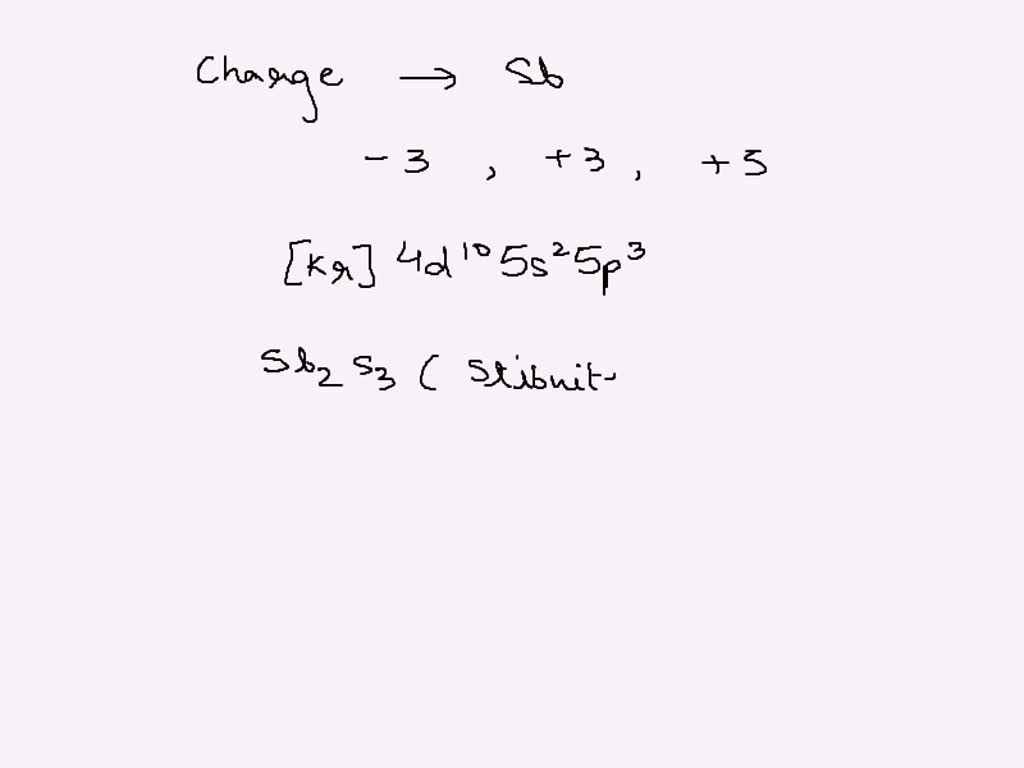 Charge → Sb
-3 , +3 , +5
[Kr] 4d¹⁰ 5s² 5p³
Sb₂ S₃ ( Stibnit